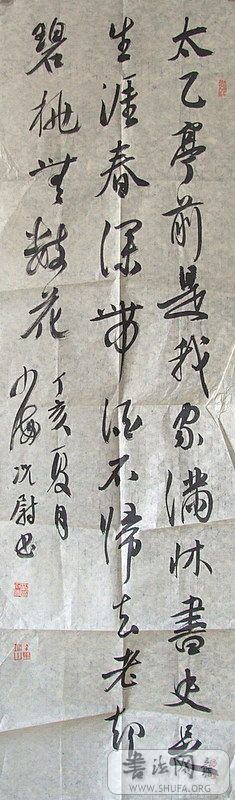 太乙亭前是我家滿床書史
生涯春深帶酒不歸去老却
碧桃無數花
丁亥夏月
少海
尉書
书法网
WWW.SHUFA.ORG